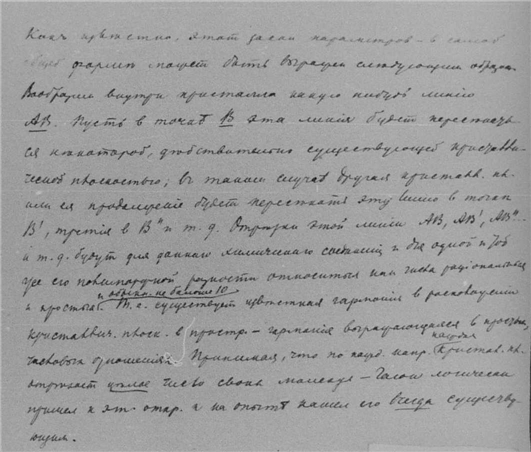 Какъ извѣстно, этотъ законъ параметровъ – въ самой
общей формѣ можетъ быть выраженъ слѣдующимъ образомъ.
Вообразимъ внутри кристалла какую нибудь линію
АВ. Пусть въ точкѣ В эта линія будетъ пересѣкать
ся нѣкоторой, дѣйствительно существующей кристалли-
ческой плоскостью; въ такомъ случаѣ другая кристалл. пл.
или ея продолженіе будетъ пересѣкать эту линію в точкѣ
В', третія в В'' и т.д. Отрѣзки этой линіи АВ, АВ', АВ''...
и т.д. будутъ для даннаго химическаго соединенія и для одной и той
же его полиморфной разности относиться какъ числа раціональныя
и простыя. Т.е. существуетъ извѣстная гармонія в расположеніи
кристаллич. плоск. в простр. – гармонія выражающаяся в простыхъ
числовыхъ отношеніяхъ. Принимая, что по кажд. напр. кристал. пл.
цѣлое число своихъ молекулъ – логически
пришелъ к эт. и на опытѣ нашелъ его всегда существу-
ющимъ.